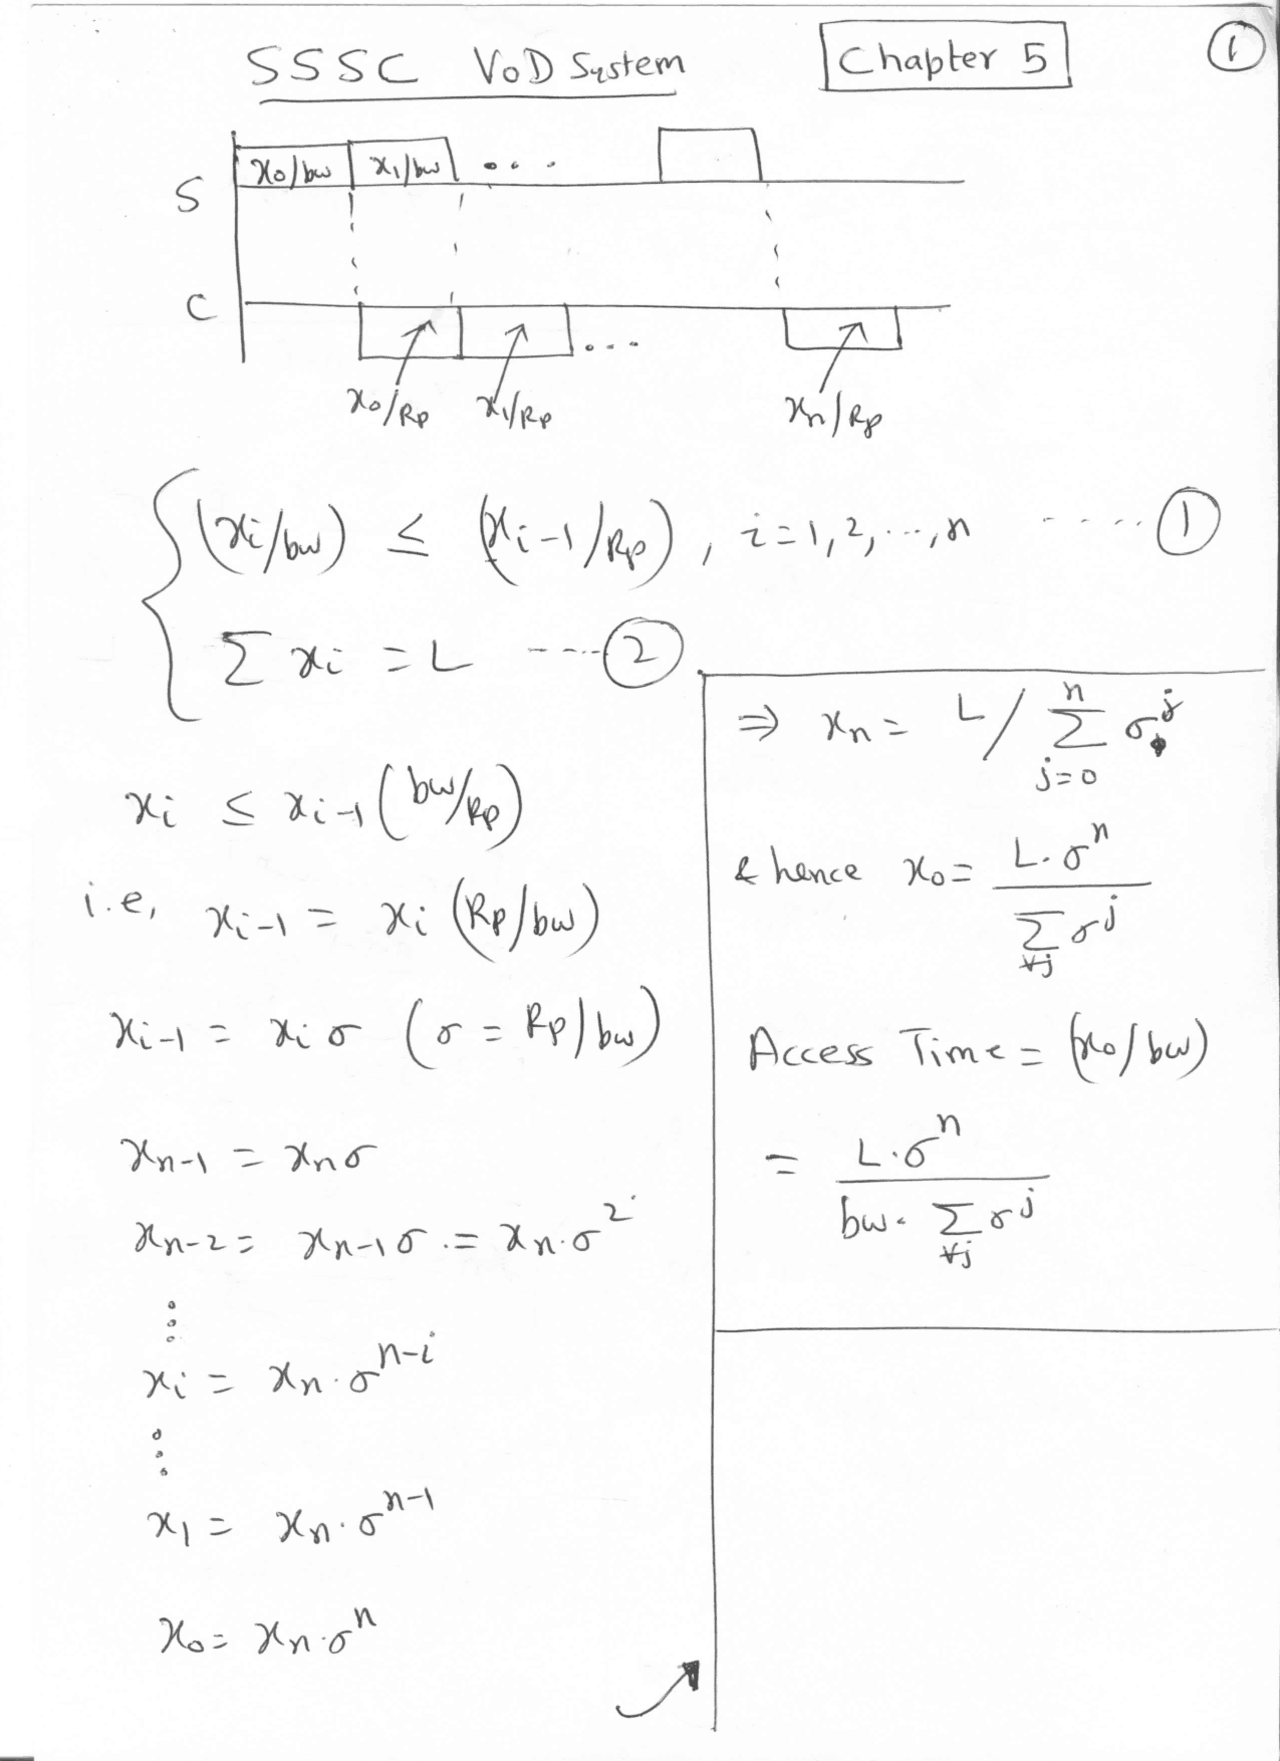 SSSC VoD System
Chapter 5
①
x₀/bw x₁/bw ....
S
C
...
x₀/Rp x₁/Rp xₙ/Rp
(xᵢ/bw) ≤ (xᵢ₋₁/Rp), i=1,2,...,n ........ ①
Σ xᵢ = L ----- ②
xᵢ ≤ xᵢ₋₁ (bw/Rp)
i.e, xᵢ₋₁ = xᵢ (Rp/bw)
xᵢ₋₁ = xᵢ σ (σ = Rp/bw)
xₙ₋₁ = xₙσ
xₙ₋₂ = xₙ₋₁σ = xₙ·σ²
⋮
xᵢ = xₙ·σⁿ⁻ⁱ
⋮
x₁ = xₙ·σⁿ⁻¹
x₀ = xₙ·σⁿ
⇒ xₙ = L / Σ_{j=0}^{n} σʲ
& hence x₀ = L·σⁿ / Σ_{∀j} σʲ
Access Time = (x₀/bw)
= L·σⁿ / bw· Σ_{∀j} σʲ